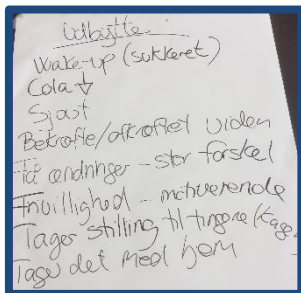 Udbytte
Wake-up (sukkeret)
Cola ↓
Sjovt
Bekræfte/afkræftet viden
Få ændringer - stor forskel
Frivillighed - motiverende
Tager stilling til tingene (kage
Tage det med hjem